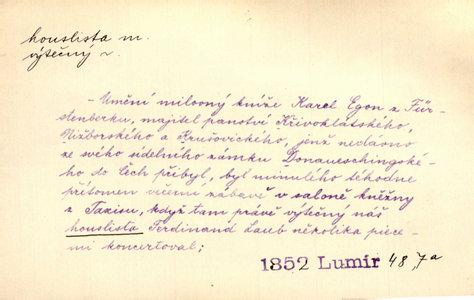 houslista m.
výtečný ~
— Umění milovný kníže Karel Egon z Für-
stenberku, majitel panství Křivoklátského,
Nižborského a Krušovického, jenž nedávno
ze svého údelního zámku Donaueschingské-
ho do Čech přibyl, byl minulého téhodne
přítomen večerní zábavě v saloně kněžny
z Taxisu, když tam právě výtečný náš
houslista Ferdinand Laub několika piece-
mi koncertoval;
1852 Lumír 48, 7a